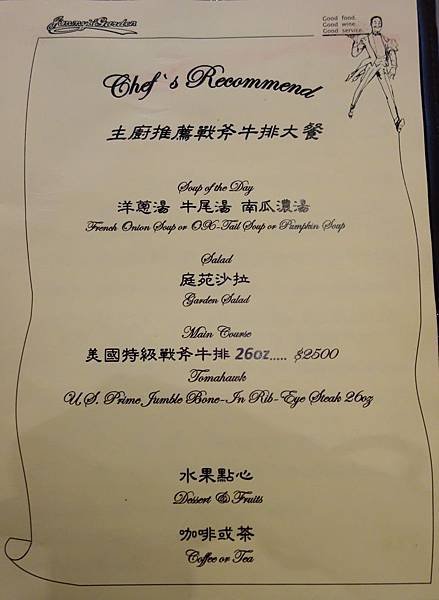 Jimmy's Garden
Good food.
Good wine.
Good service.
Chef`s Recommend
主廚推薦戰斧牛排大餐
Soup of the Day
洋蔥湯 牛尾湯 南瓜濃湯
French Onion Soup or OX-Tail Soup or Pumpkin Soup
Salad
庭苑沙拉
Garden Salad
Main Course
美國特級戰斧牛排 26oz..... $2500
Tomahawk
U.S. Prime Jumble Bone-In Rib-Eye Steak 26oz
水果點心
Dessert & Fruits
咖啡或茶
Coffee or Tea